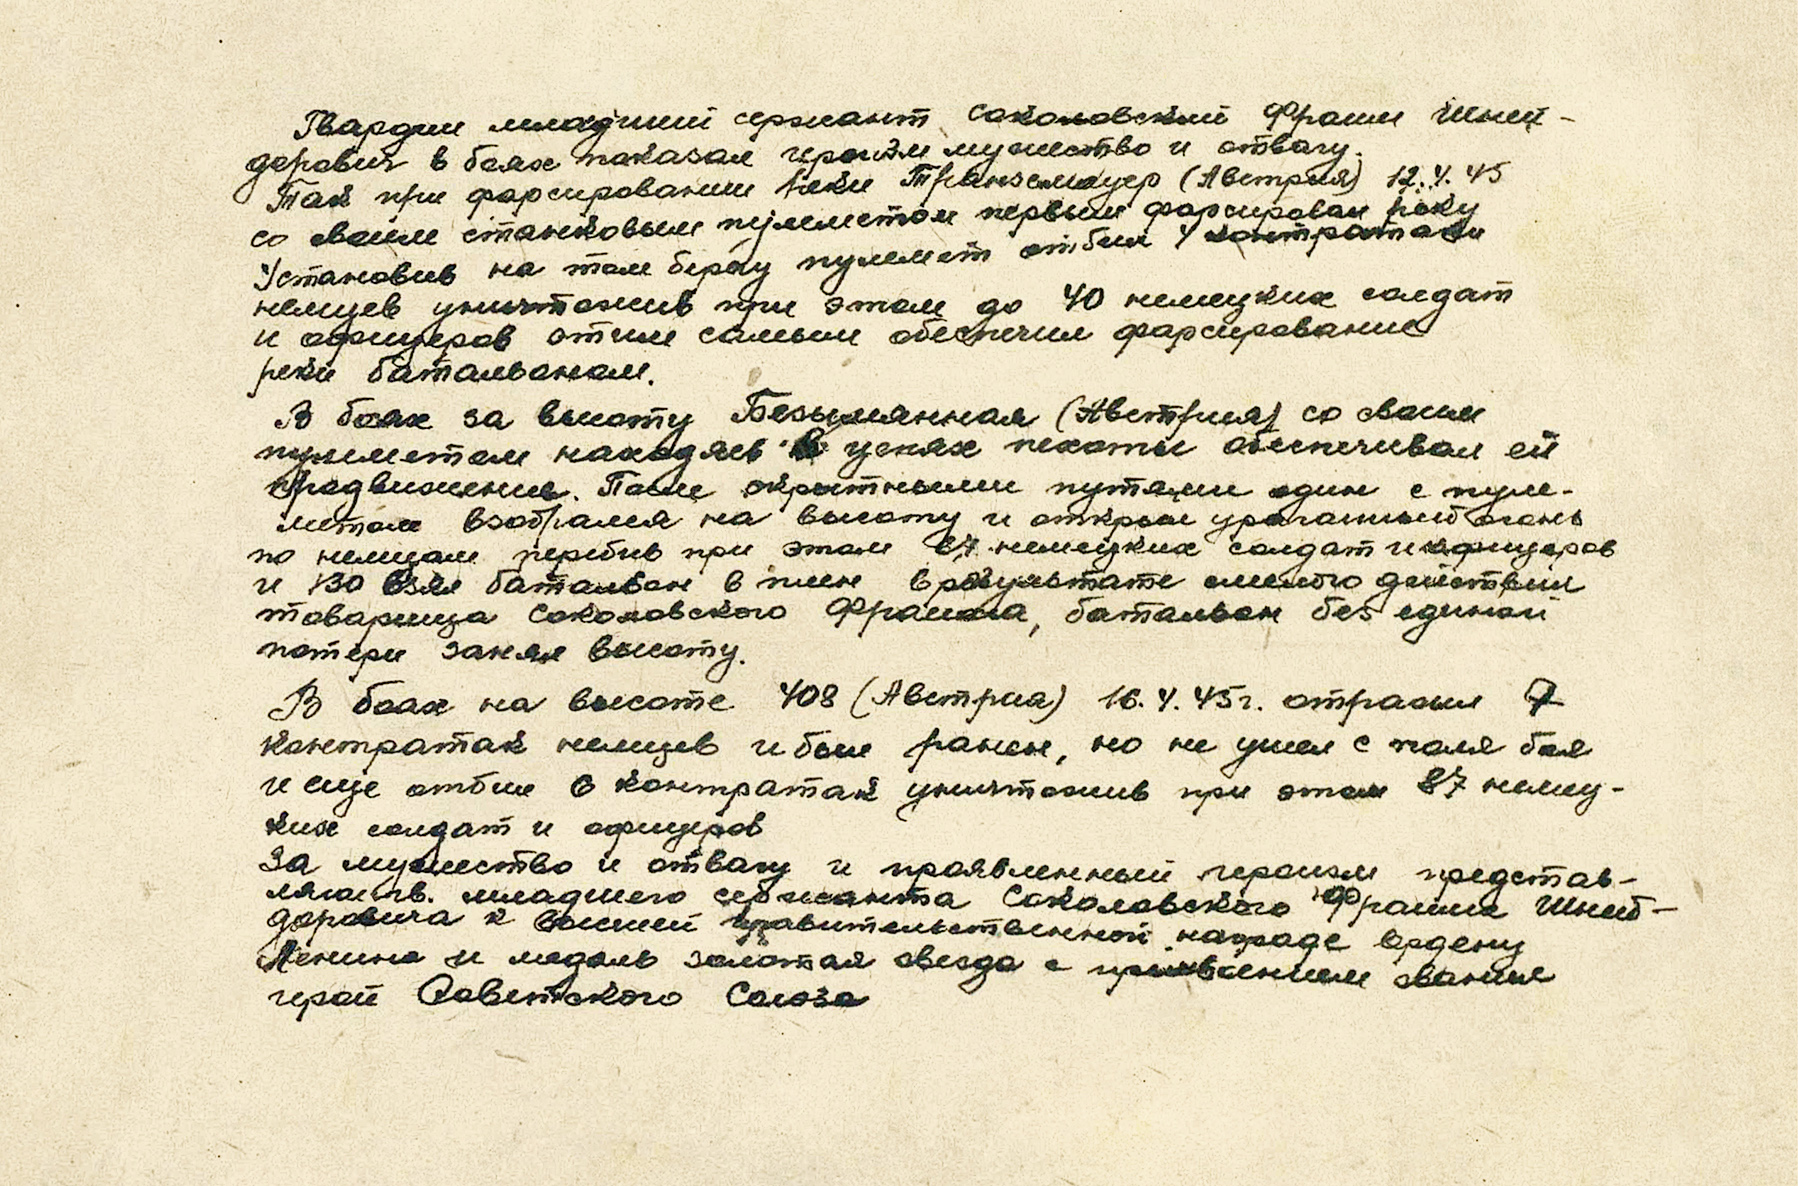 Гвардии младший сержант Соколовский Фроим Шней-
дорович в боях показал героизм мужество и отвагу.
Так при форсировании реки (Австрия) 12.4.45
со своим станковым пулеметом первым форсировал реку
Установив на том берегу пулемет отбил 4 контратаки
немцев уничтожив при этом до 40 немецких солдат
и офицеров этим самым обеспечил форсирование
реки батальоном.
В боях за высоту Безымянная (Австрия) со своим
пулеметом находясь в цепях пехоты обеспечивал ей
продвижение. После скрытными путями один с пуле-
метом взобрался на высоту и открыл ураганный огонь
по немцам перебив при этом немецких солдат и офицеров
и 130 взял батальон в плен в результате смелого действия
товарища Соколовского Фроима, батальон без единой
потери занял высоту.
В боях на высоте 408 (Австрия) 16.4.45г. отразил 7
контратак немцев и был ранен, но не ушел с поля боя
и еще отбил 6 контратак уничтожив при этом 87 немец-
ких солдат и офицеров
За мужество и отвагу и проявленный героизм представ-
ляю гв. младшего сержанта Соколовского Фроима Шней-
доровича к высшей правительственной награде ордену
Ленина и медаль золотая звезда с присвоением звания
герой Советского Союза